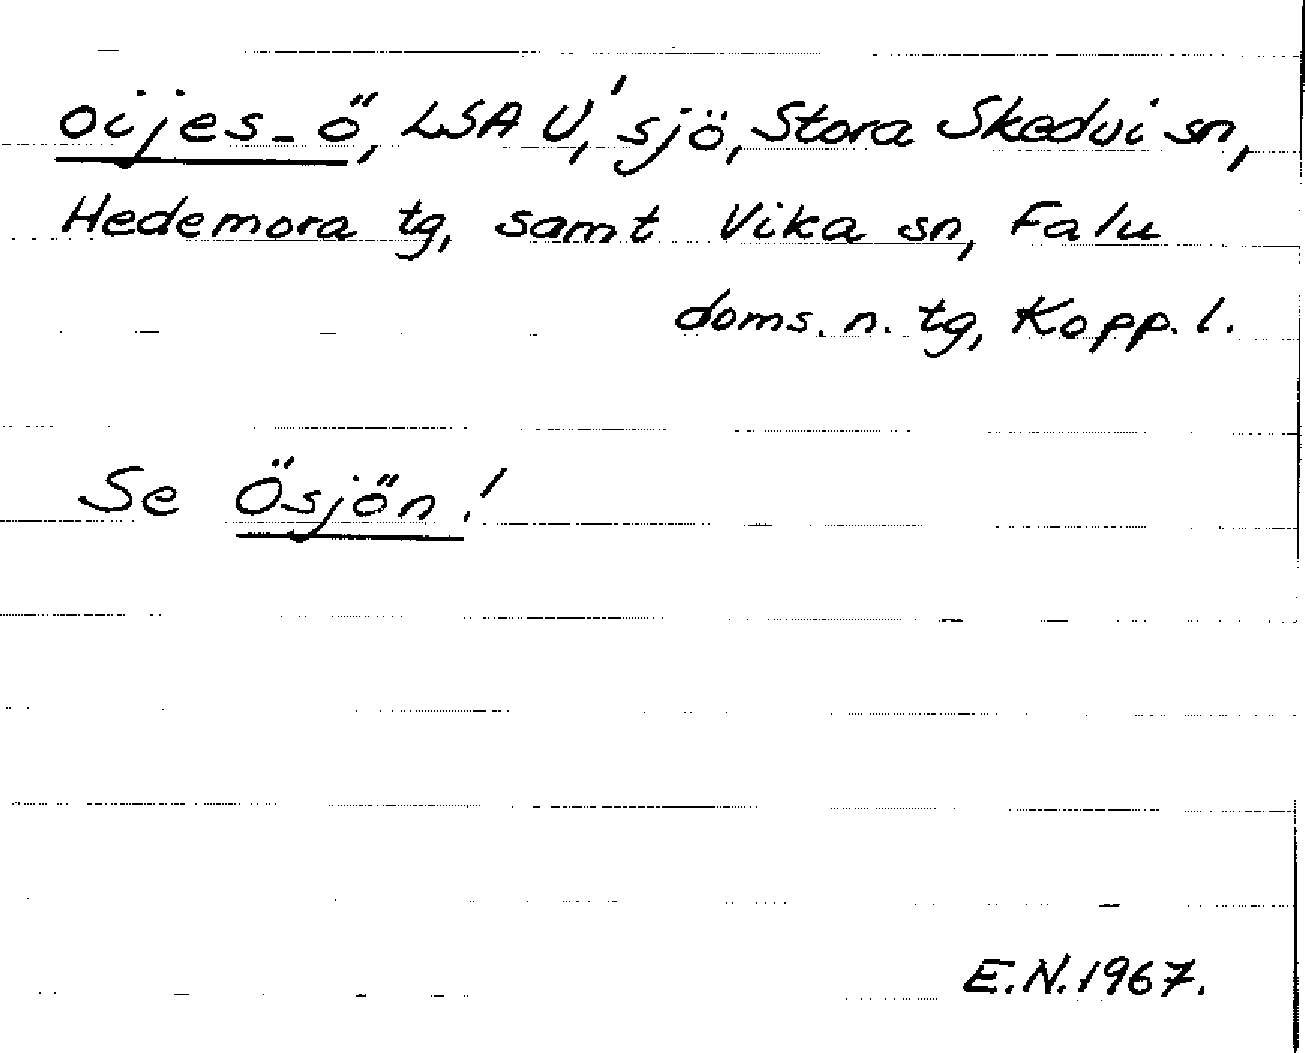 oijes-ö, LSA U,' sjö, Stora Skedvi sn,
Hedemora tg, samt Vika sn, Falu
doms. n. tg, Kopp. l.
Se Ösjön!
E.N. 1967.